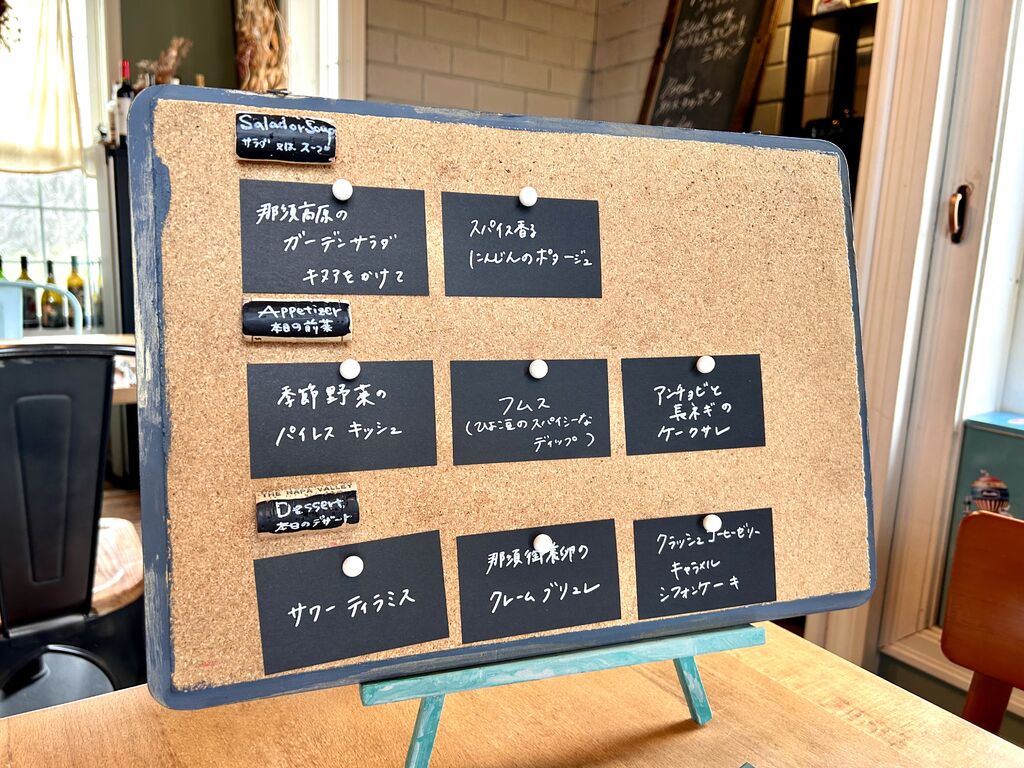 Salad or Soup
サラダ 又は スープ
那須高原の
ガーデンサラダ
キヌアをかけて
スパイス香る
にんじんのポタージュ
Appetizer
本日の前菜
季節野菜の
パイレス キッシュ
フムス
(ひよこ豆のスパイシーな
ディップ)
アンチョビと
長ネギの
ケークサレ
THE NAPA VALLEY
Dessert
本日のデザート
サワー ティラミス
那須御養卵の
クレームブリュレ
クラッシュコーヒーゼリー
キャラメル
シフォンケーキ